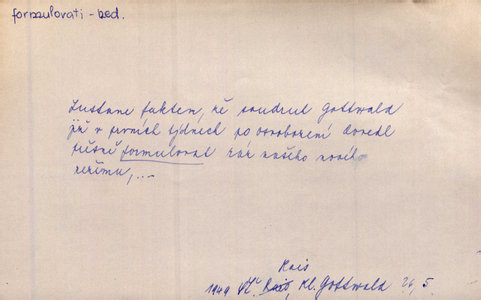 formulovati - ned.
Zustane faktem, že soudruh Gottwald
již v prvních týdnech po osvobození dovedl
přesně formuloval ráz našeho nového
režimu, ...
Rais
1949 Vl. Kl. Gottwald 26, 5